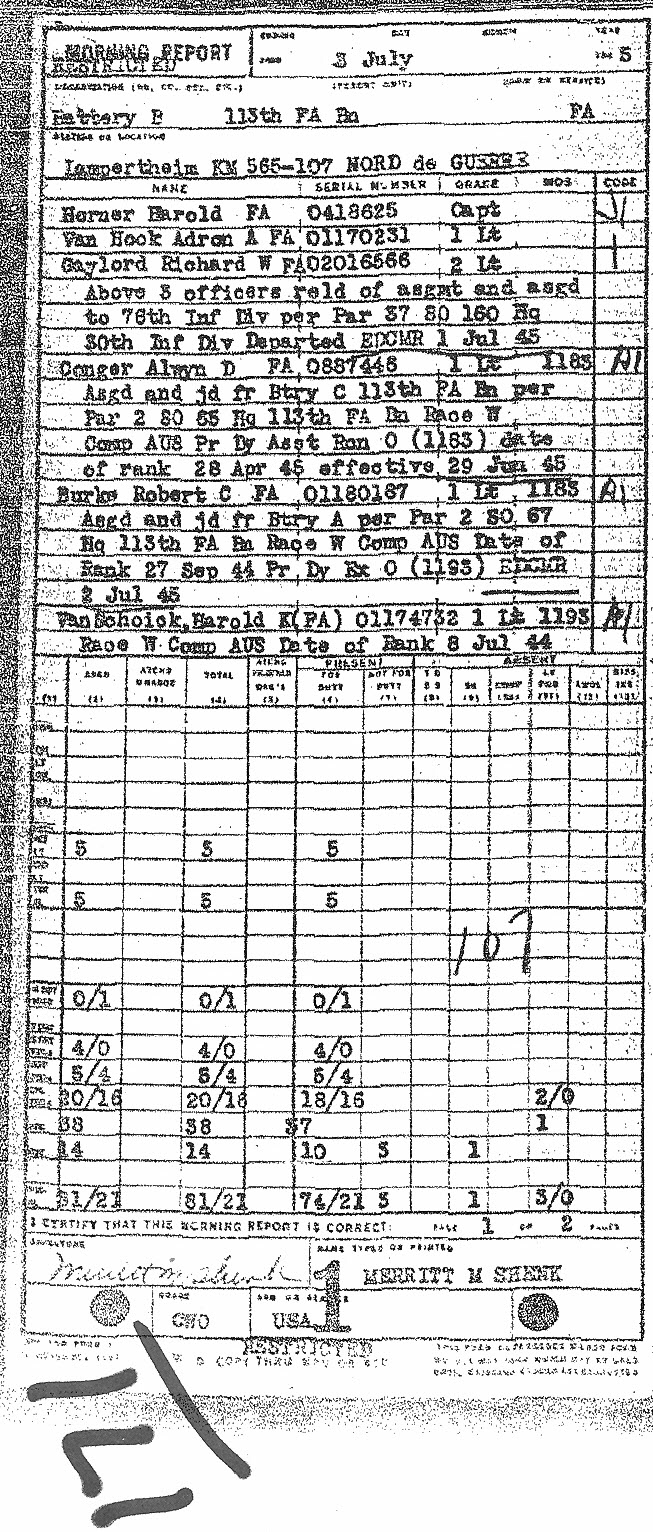 MORNING REPORT
RESTRICTED
3 July 5
Battery B 113th FA Bn FA
STATION OR LOCATION
Lampertheim KM 565-107 NORD de GUERRE
NAME SERIAL NUMBER GRADE MOS CODE
Horner Harold FA 0418625 Capt
Van Hook Adron A FA 01170231 1 Lt
Gaylord Richard W FA 02016566 2 Lt
Above 3 officers reld of asgmt and asgd
to 76th Inf Div per Par 37 SO 160 Hq
30th Inf Div Departed EDCMR 1 Jul 45
Conger Alwyn D FA 0887446 1 Lt 1183 A1
Asgd and jd fr Btry C 113th FA Bn per
Par 2 SO 65 Hq 113th FA Bn Race W
Comp AUS Pr Dy Asst Rcn O (1183) date
of rank 28 Apr 45 effective 29 Jun 45
Burks Robert C FA 01180187 1 Lt 1183 A1
Asgd and jd fr Btry A per Par 2 SO 67
Hq 113th FA Bn Race W Comp AUS Date of
Rank 27 Sep 44 Pr Dy Ex O (1193) EDCMR
2 Jul 45
VanSchoick, Harold K(FA) 01174732 1 Lt 1193 A1
Race W Comp AUS Date of Rank 8 Jul 44
PRESENT ABSENT
TOTAL
5 5 5
5 5 5
107
0/1 0/1 0/1
4/0 4/0 4/0
5/4 5/4 5/4
20/16 20/16 18/16 2/0
38 38 37 1
14 14 10 3 1
81/21 81/21 74/21 3 1 3/0
I CERTIFY THAT THIS MORNING REPORT IS CORRECT: PAGE 1 OF 2 PAGES
SIGNATURE NAME TYPED OR PRINTED
Merritt M Shenk MERRITT M SHENK
1
GRADE
CWO USA
RESTRICTED